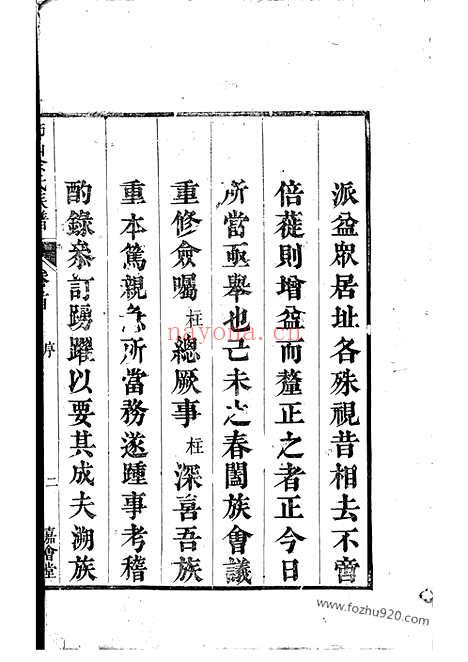 派益眾居址各殊視昔相去不啻
倍蓰則增益而釐正之者正今日
所當亟舉也己未之春闔族會議
重修僉囑柱總厥事柱深喜吾族
重本篤親急所當務遂踵事考稽
酌錄叅訂踴躍以要其成夫溯族
氏族譜
卷首
序
二
嘉會堂
nayona.cn
www.fozhu920.com